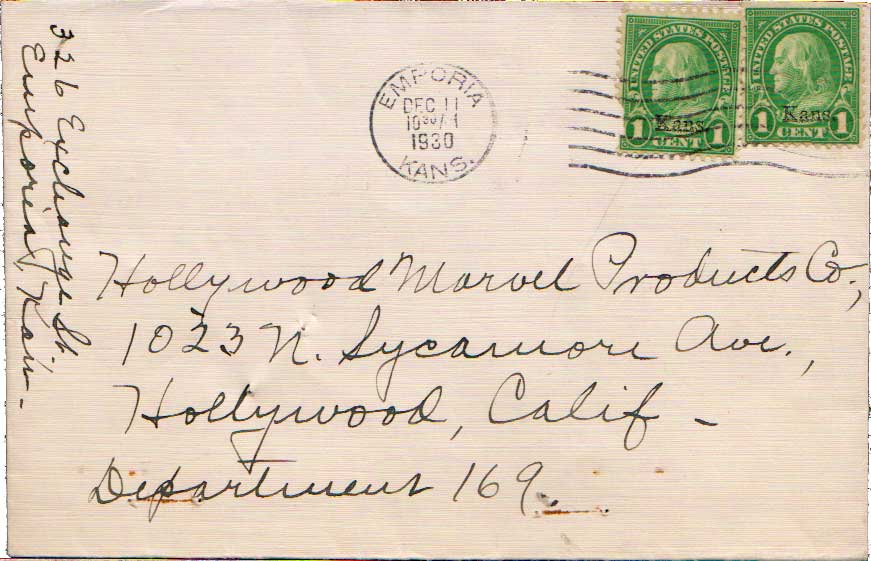 326 Exchange St.
Emporia, Kan.
EMPORIA
DEC 11
1930
KANS.
UNITED STATES POSTAGE
Kans.
1 CENT 1
UNITED STATES POSTAGE
Kans.
1 CENT 1
Hollywood Marvel Products Co.,
1023 N. Sycamore Ave.,
Hollywood, Calif -
Department 169.